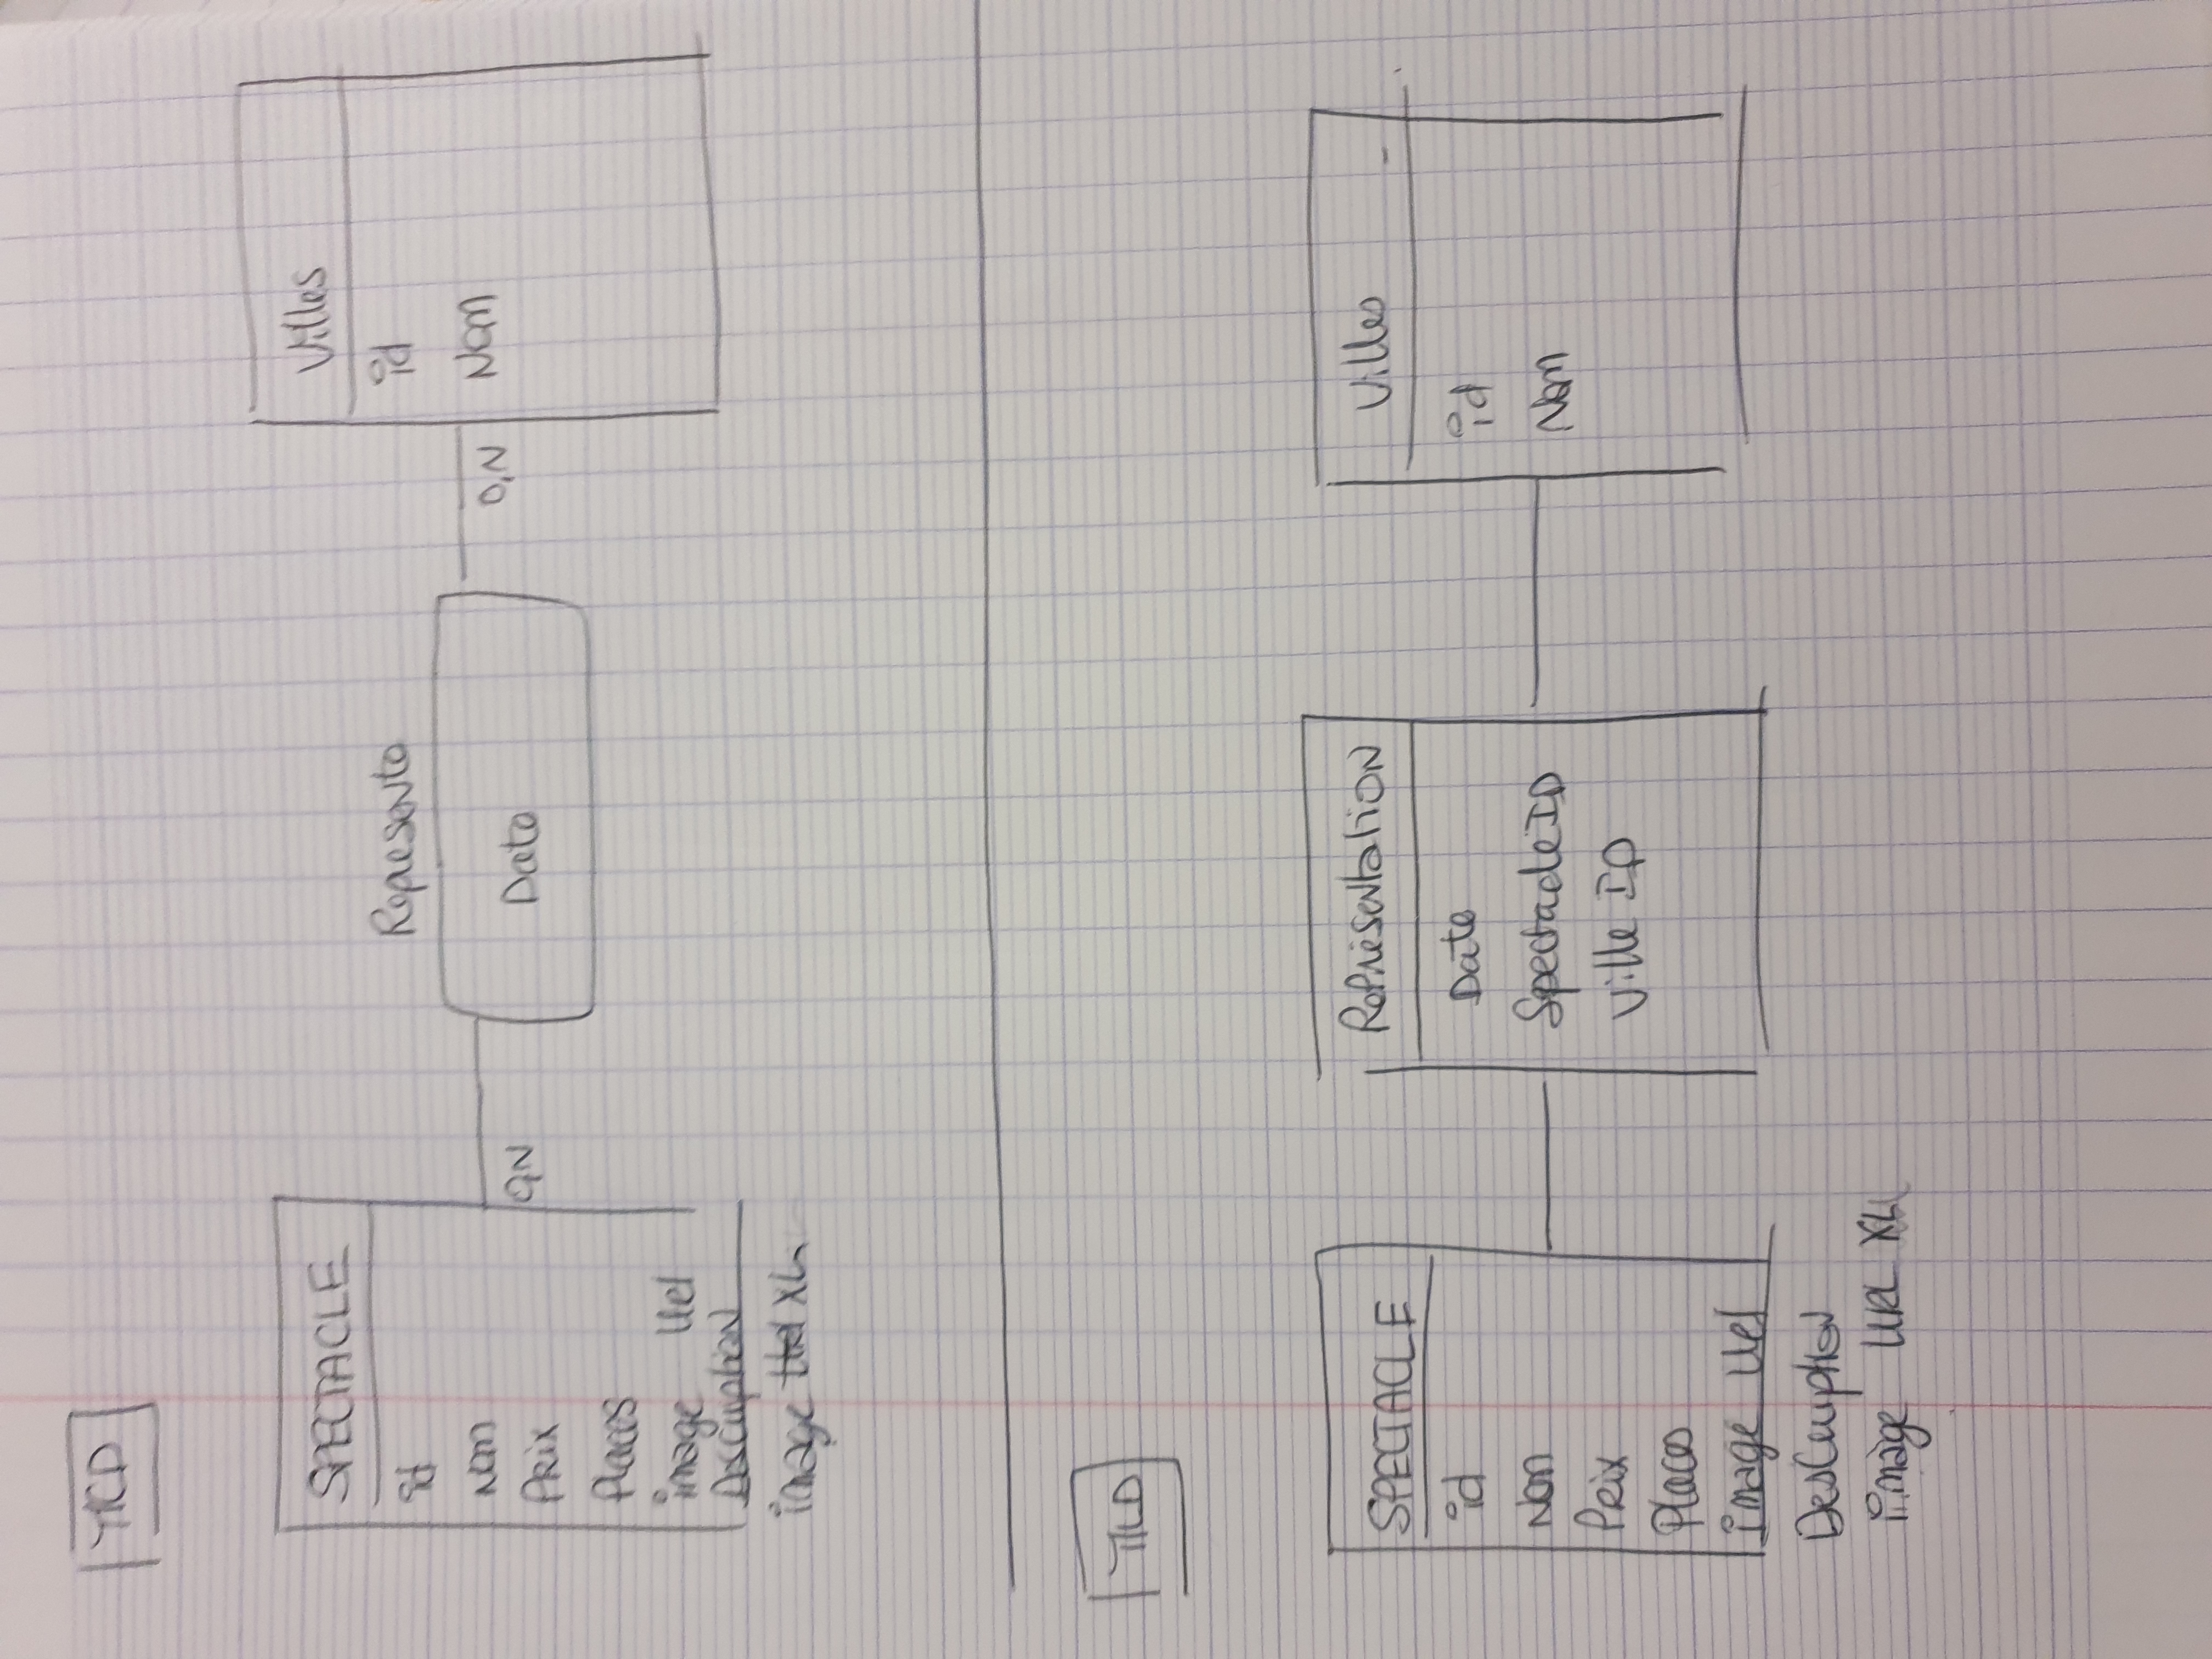 MCD
SPECTACLE
id
Nom
Prix
Places
image Url
Description
image XL
0,N
Represente
Date
0,N
Villes
id
Nom
MLD
SPECTACLE
id
Nom
Prix
Places
image Url
Description
image URL XL
Représentation
Date
Spectacle ID
Ville ID
Villes
id
Nom